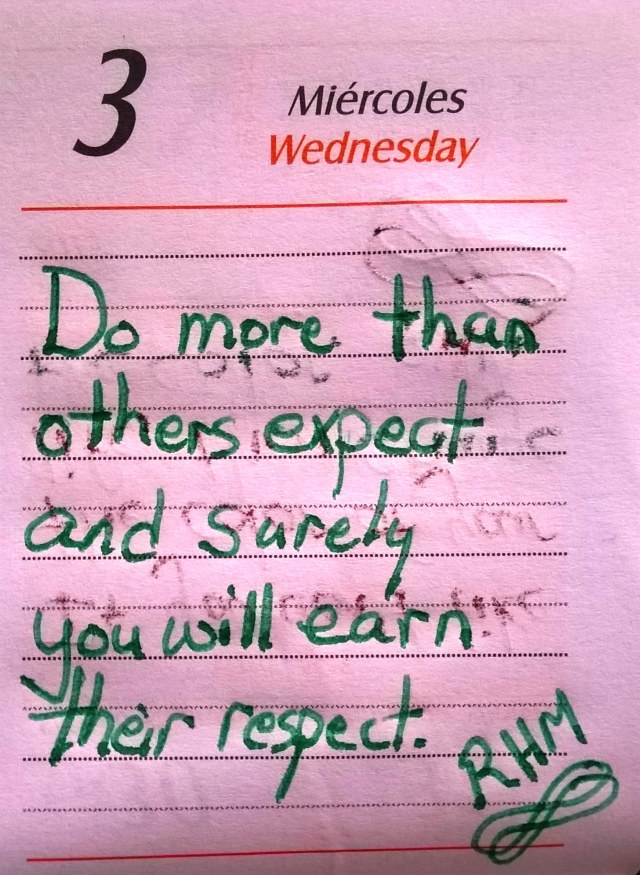 3
Miércoles
Wednesday
Do more than
others expect
and surely
you will earn
their respect.
RHM